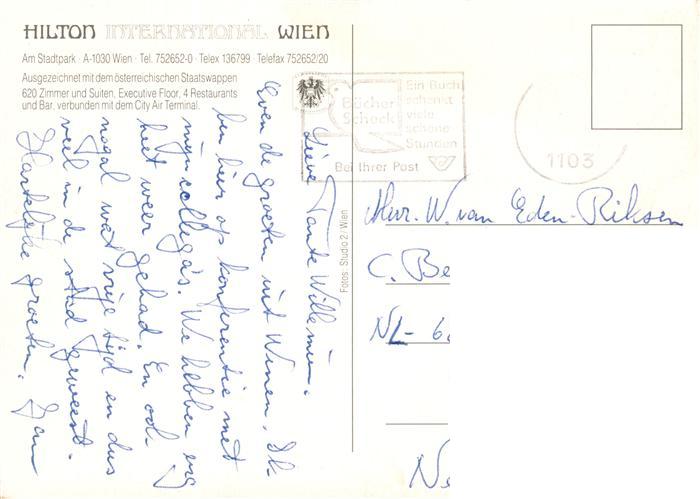 HILTON INTERNATIONAL WIEN
Am Stadtpark · A-1030 Wien · Tel. 752652-0 · Telex 136799 · Telefax 752652/20
Ausgezeichnet mit dem österreichischen Staatswappen
620 Zimmer und Suiten, Executive Floor, 4 Restaurants
und Bar, verbunden mit dem City Air Terminal.
Lieve Tante Willemien.
Even de groeten uit Wenen. Ik
ben hier op konferentie met
mijn collega's. We hebben erg
heet weer gehad. En ook
nogal wat vrije tijd en dus
veel in de stad geweest.
Hartelijke groeten. Jan
Fotos: Studio 2 / Wien
Bücher
Scheck
Ein Buch
schenkt
viele
schöne
Stunden
Bei Ihrer Post
1103
Mevr. W. van Eden-Riksen
C. Be
NL- 6